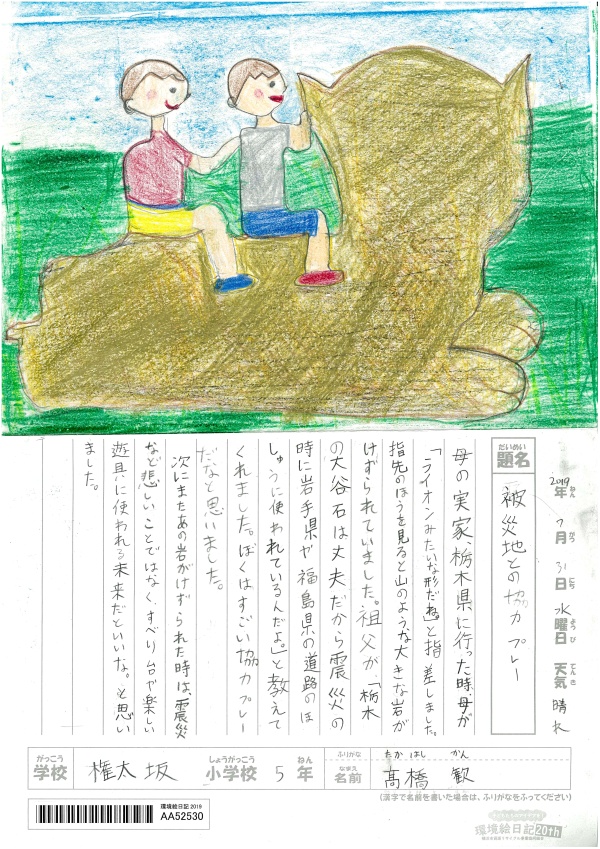 だいめい
題名
被災地との協力プレー
2019年ねん7月がつ31日にち水曜日ようび天気てんき晴れ
母の実家、栃木県に行った時、母が
「ライオンみたいな形だね。」と指差しました。
指先のほうを見ると山のような大きな岩が
けずられていました。祖父が、「栃木
の大谷石は丈夫だから震災の
時に岩手県や福島県の道路のほ
しゅうに使われているんだよ。」と教えて
くれました。ぼくはすごい協力プレー
だなと思いました。
次にまたあの岩がけずられた時は、震災
など悲しいことではなく、すべり台や楽しい
遊具に使われる未来だといいな。と思い
ました。
がっこう
学校
権太坂
しょうがっこう
小学校
5
ねん
年
ふりがな
たかはし かん
なまえ
名前
髙橋 歓
(漢字で名前を書いた場合は、ふりがなをふってください)
環境絵日記 2019
AA52530
環境絵日記20th